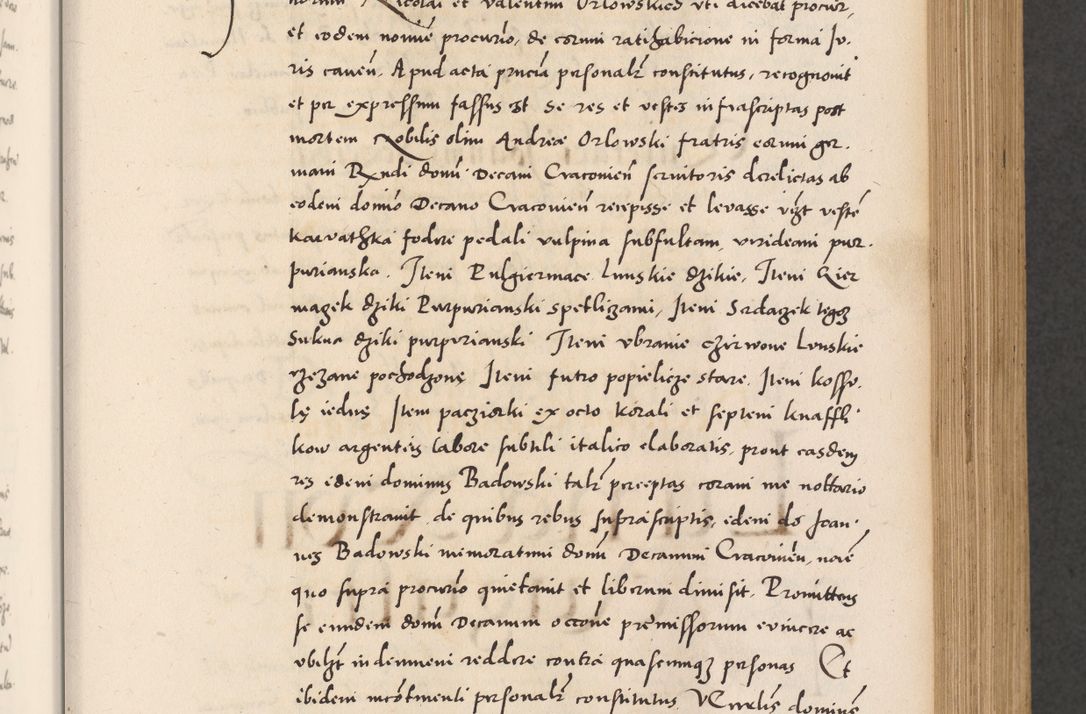 Nicolai et Valentini Orlowskich uti dicebat procur,
et eodem nomine procurio, de eorum ratihabicione in forma Iu.
ris caven. Apud acta pncia personalr constitutus, recognovit
et per expressum fassus est se res et vestes infrascriptas post
mortem Nobilis olim Andreæ Orlowski fratris eorum ger.
mani Rndi domi Decani Cracovien servitoris derelictas ab
eodem domino Decano Cracovien recepisse et levasse vzt vestem
karwathka fodere pedali vulpina subfultam, virideam pur.
purianska. Item Pulgiermacc Lunskie dzikie, Item Kier
mazek dziki Purpurianski spetlizami, Item Serdaczek tegoz
Sukna dziki purpurianski Item ubranie czirwone Lunskie
rzezane pochodzone Item futro popielicze stare. Item kosso.
lę iednę Item paczrorki ex octo korali et septem knaffli
kow argenteis labore subtili italico elaboratis, prout easdem
res idem dominus Badowski talr perceptas coram me nottario
demonstravit de quibus rebus suprascriptis, edem do Joan.
nes Badowski memoratum domi Decanum Cracovien, noie
quo supra procurio quietavit et liberum dimisit. Promittens
se eundem domi Decanum occone premissorum evincere ac
ubilzt indemnem reddere contra quascunqz personas Et
ibidem incontinenti personalr constitutus Venerlis dominus